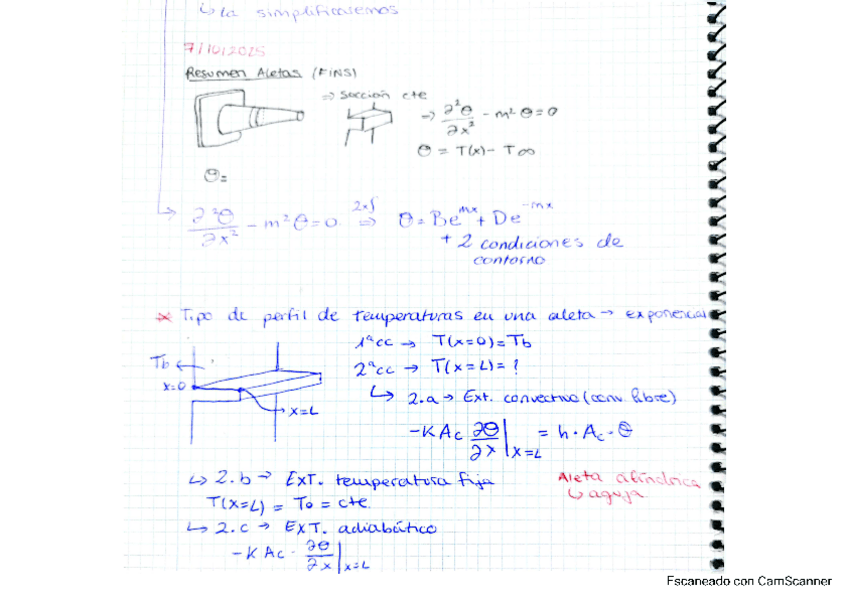 ↳ la simplificaremos
7/10/2025
Resumen Aletas (FINS)
⇒ Sección cte
⇒ ∂²θ/∂x² - m² θ = 0
θ = T(x) - T∞
θ=
↳ ∂²θ/∂x² - m²θ = 0 2x∫ ⇒ θ = Be^mx + De^-mx
+ 2 condiciones de
contorno
* Tipo de perfil de temperaturas en una aleta → exponencial
1ª cc → T(x=0) = Tb
Tb
x=0
2ª cc → T(x=L) = ?
↳ 2.a → Ext. convectivo (conv. libre)
→ x=L
-K Ac ∂θ/∂x |x=L = h · Ac · θ
↳ 2.b → EXT. temperatura fija
T(x=L) = To = cte.
Aleta cilíndrica
↳ aguja
↳ 2.c → EXT. adiabático
-K Ac · ∂θ/∂x |x=L
Escaneado con CamScanner